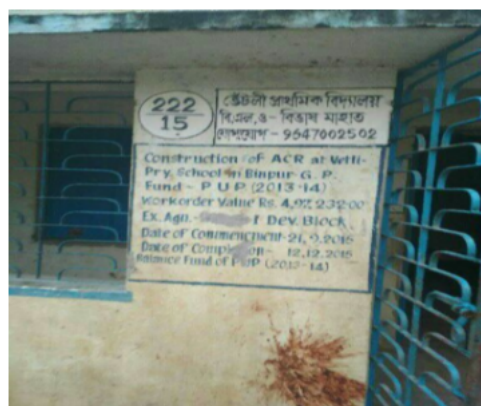 222
15
ভেটলী প্রাথমিক বিদ্যালয়
বি,এল,ও - বিভাষ মাহাত
যোগাযোগ - 9647002502
Construction of ACR at Vetli-
Pry. School in Binpur G. P.
Fund - P U P (2013-14)
Workorder Value Rs.
Ex. Agn. Dev. Block.
Date of Commencment-21.9.2015
Date of 12.12.2015
Balance Fund of PUP (2013-14)